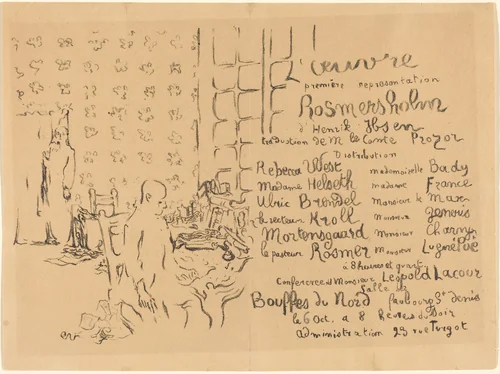 L'œuvre
première représentation
Rosmersholm
d'Henrik Ibsen
traduction de M. le Comte Prozor
Distribution
Rebecca West mademoiselle Bady
Madame Helseth madame France
Ulric Brendel Monsieur le Max
le recteur Kroll Monsieur
Mortensgaard Monsieur Charny
le pasteur Rosmer Monsieur Lugné Poë
à 8 heures et quart
Conférence de Monsieur Léopold Lacour
Salle
Bouffes du Nord faubourg St Denis
le 6 Oct. à 8 heures du Soir
administration 23 rue Turgot